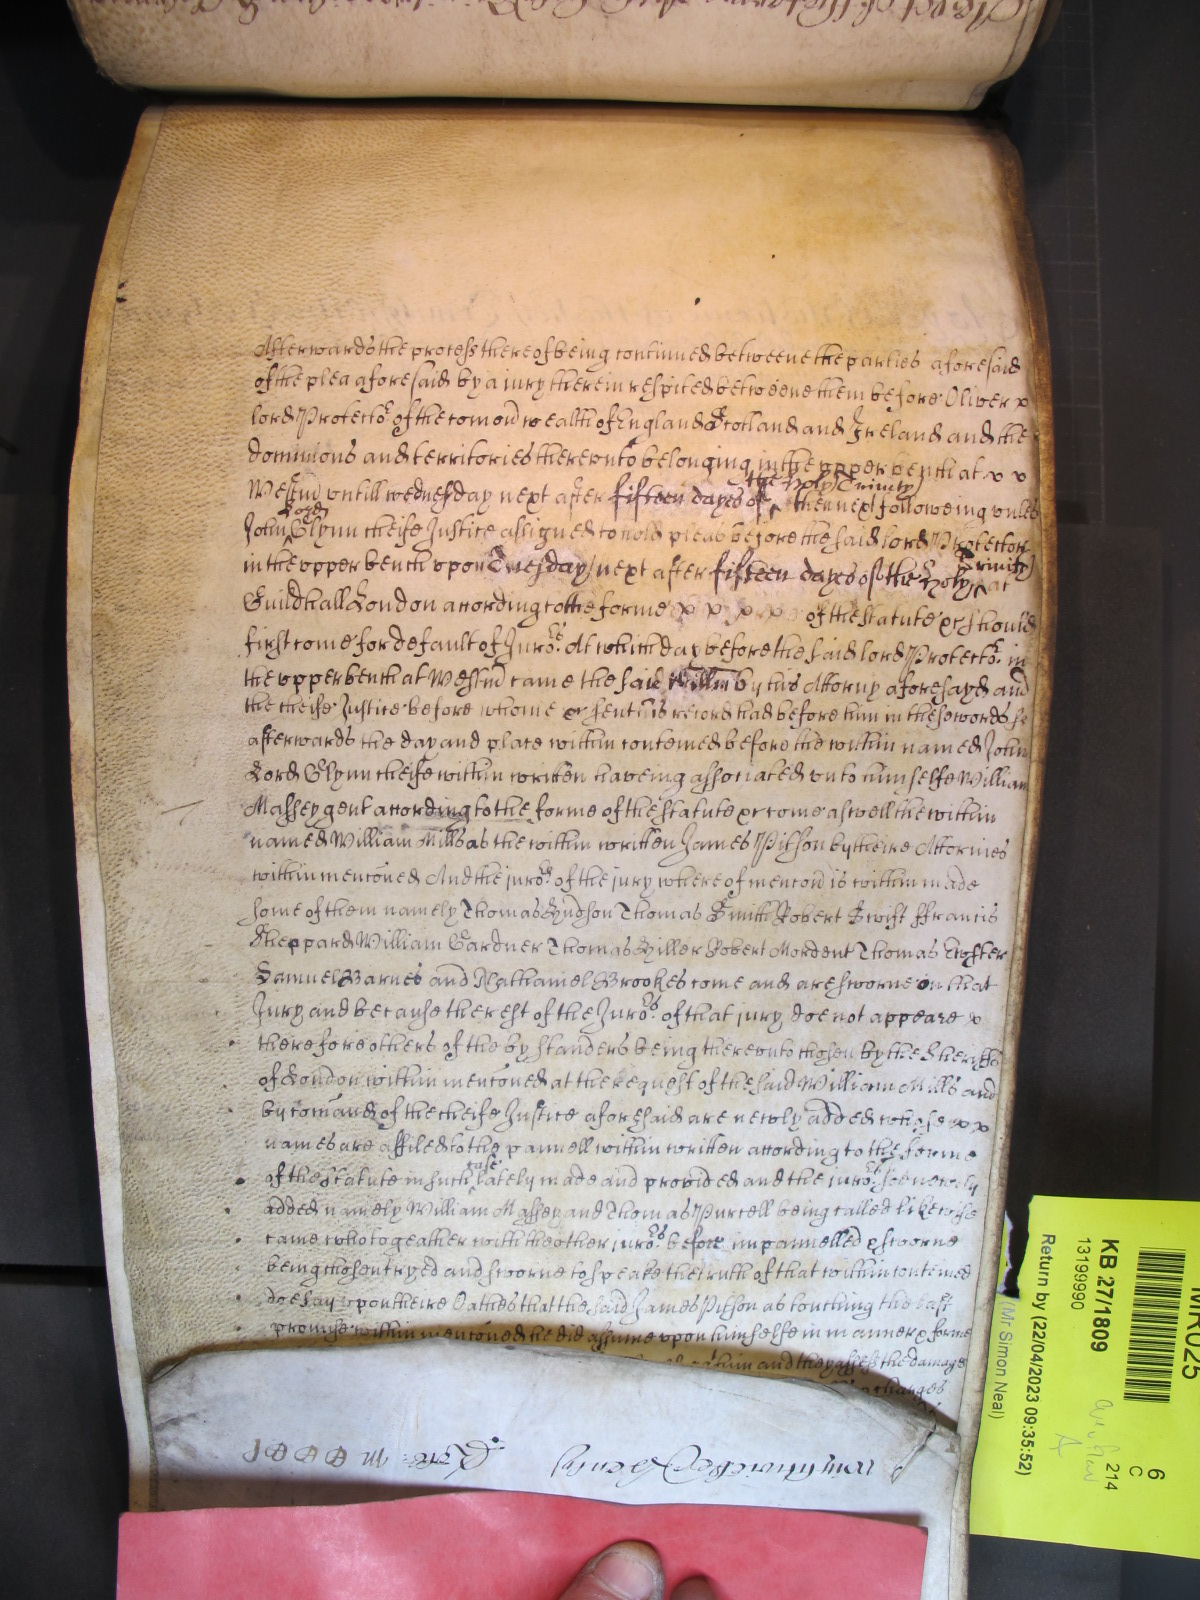 Afterwards the process thereof being continued betweene the parties aforesaid
of the plea aforesaid by a jury therein respited betweene them before Oliver x
lord Protector of the comonwealth of England Scotland and Ireland and the
dominions and territories thereunto belonging in the upper bench at x x
the holy Trinity
Westm untill wednesday next after fifteen dayes of then next following unles
Lord
John Glynn cheife Justice assigned to hold pleas before the said lord Protector
Trinity
in the upper bench upon Tuesday next after fifteen dayes of the Holy at
Guildhall London according to the forme x x x x of the statute &c should
first come for default of Juro:rs At which day before the said lord Protecto:r in
the upper bench at Westm came the said Willm by his Attorny aforesayd and
the cheife Justice before whome &c sent his record had before him in these words
afterwards the day and place within conteined before the within named John
Lord Glynn cheife within written haveing associated unto himselfe William
Massey gent according to the forme of the statute &c come aswell the within
named William Mills as the within written James Pitson by theire Attornies
within mencioned And the juro:rs of the jury whereof mencion is within made
some of them namely Thomas Thomas Smith Robert Swift ffrancis
Sheppard William Gardner Thomas Robert Mordent Thomas
Samuel Barnes and Nathaniel Brookes come and are sworne on that
Jury and because the rest of the Juro:rs of that jury doe not appeare x
therefore others of the by standers being thereunto chosen by the Sheriffs
of London within mencioned at the request of the said William Mills and
by comand of the cheife Justice aforesaid are newly added whose x x
names are affiled to the pannell within written according to the forme
case
of the statute in such lately made and provided and the juro:rs soe newly
added namely William Massey and Thomas Purcell being called likewise
came who togeather with the other juro:rs before impannelled & sworne
being chosen tryed and sworne to speake the truth of that within conteined
doe say upon theire Oathes that the said James Pitson as touching the last
promise within mencioned he did assume upon himselfe in manner & forme
and they assess the damage
charges
KB 27/1809
13199990
Return by (22/04/2023 09:35:52)
(Mr Simon Neal)
MR025
6
C
214